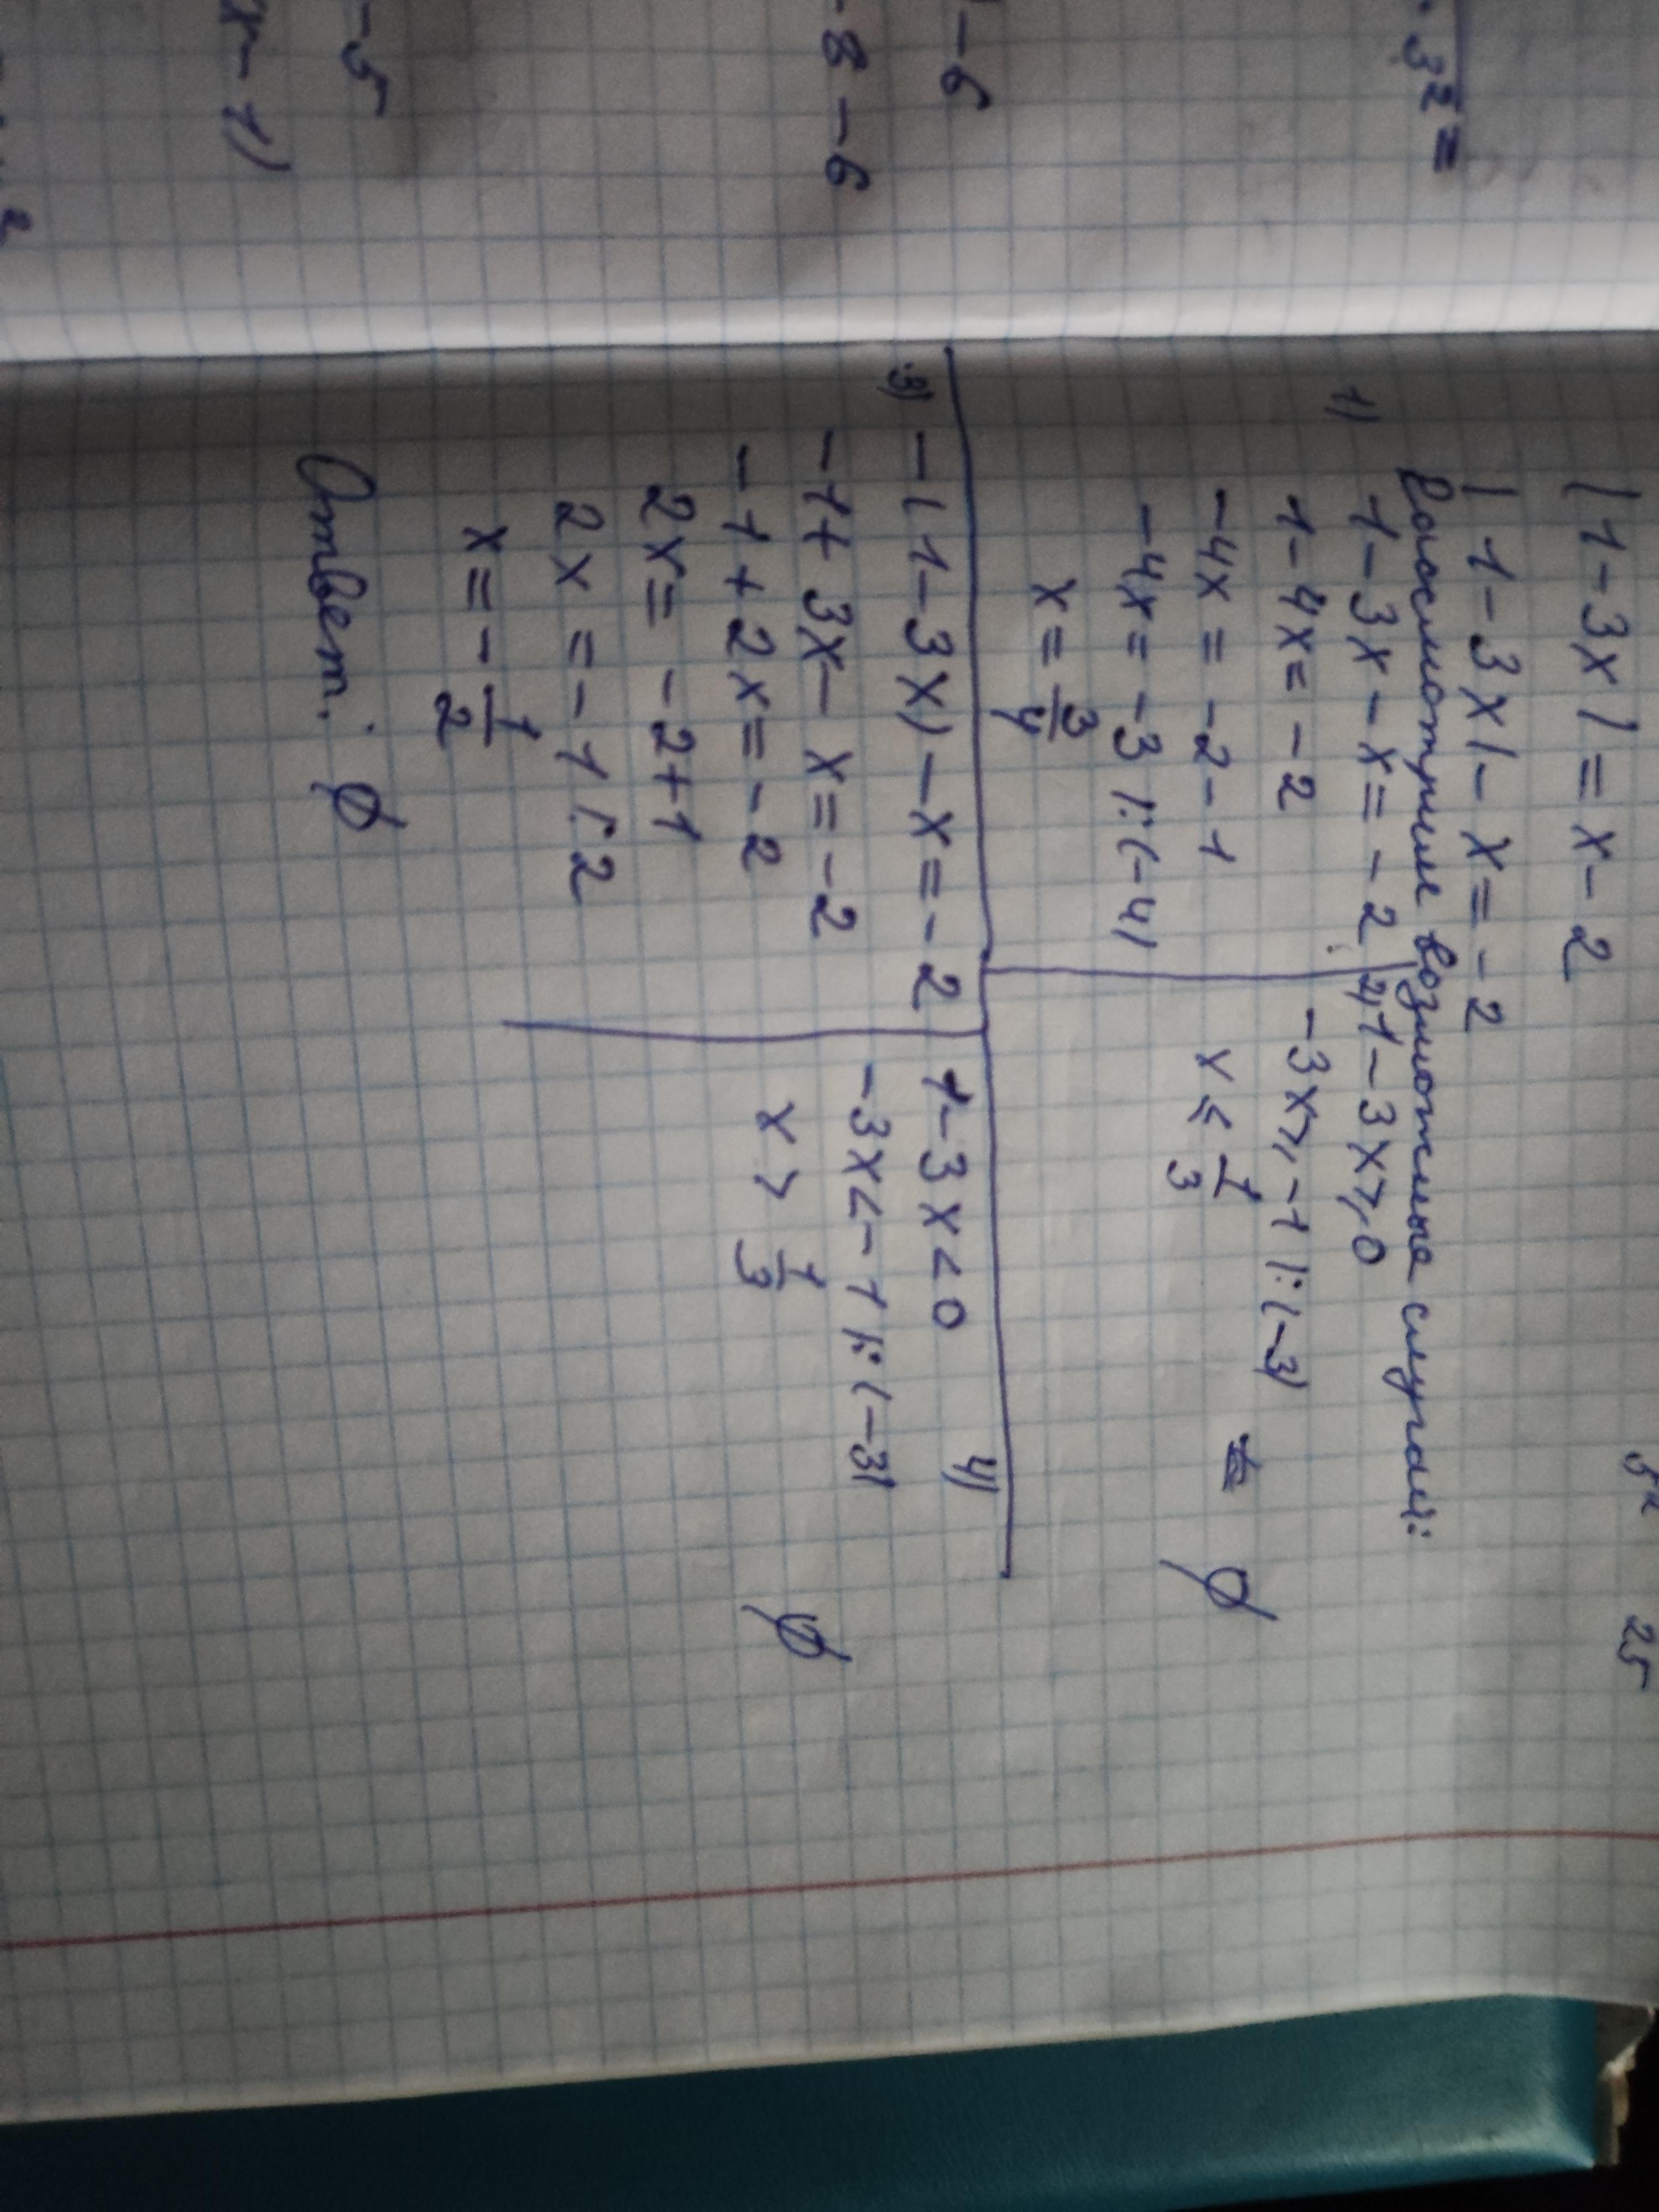 · 3² =
- 6
- 8 - 6
- 5
x - 1)
2
5² 25
|1-3x| = x-2
|1-3x|-x=-2
Рассмотрим возможные случаи:
1) 1-3x-x=-2
1-4x=-2
-4x=-2-1
-4x=-3 |:(-4)
x=3/4
2) 1-3x⩾0
-3x⩾-1 |:(-3)
x⩽1/3
∅
3) -(1-3x)-x=-2
-1+3x-x=-2
-1+2x=-2
2x=-2+1
2x=-1 |:2
x=-1/2
4)
1-3x<0
-3x<-1 |:(-3)
x>1/3
∅
Ответ: ∅